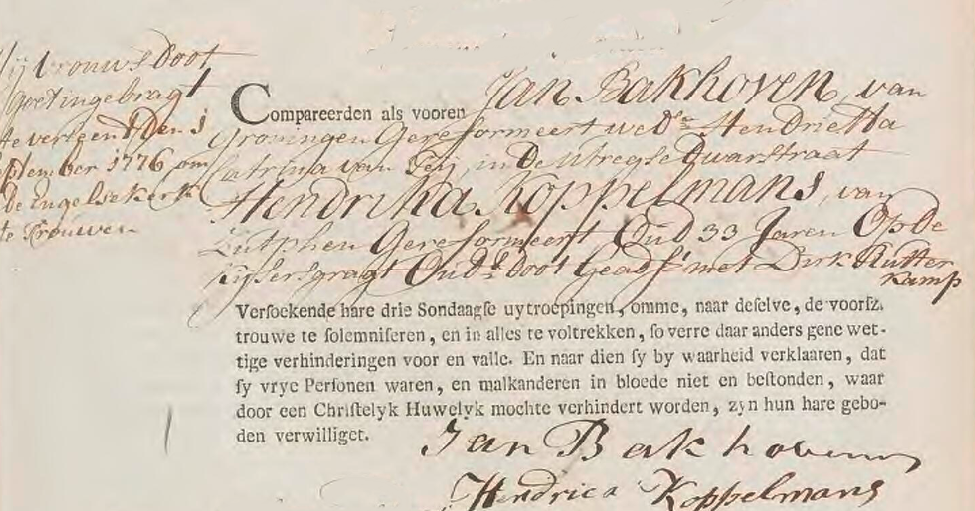 Vrouws Doot
ingebragt
verleent Den 1
September 1776 om
De Engelsekerk
te Trouwen
Compareerden als vooren Jan Bakhoven, van
Groningen Gereformeert wedr Hendrietta
Catrina van Teij, in De utregse Dwarstraat
Hendrika Koppelmans, van
Zutphen Gereformeert Oud 33 Jaren Op De
Kijsersgragt Ouds Doot Geadst met Dirk Rutter
Kamp
Versoekende hare drie Sondaagse uytroepingen, omme, naar deselve, de voorsz.
trouwe te solemniseren, en in alles te voltrekken, so verre daar anders gene wet-
tige verhinderingen voor en valle. En naar dien sy by waarheid verklaaren, dat
sy vrye Personen waren, en malkanderen in bloede niet en bestonden, waar
door een Christelyk Huwelyk mochte verhindert worden, zyn hun hare gebo-
den verwilliget.
Jan Bakhoven
Hendrica Koppelmans